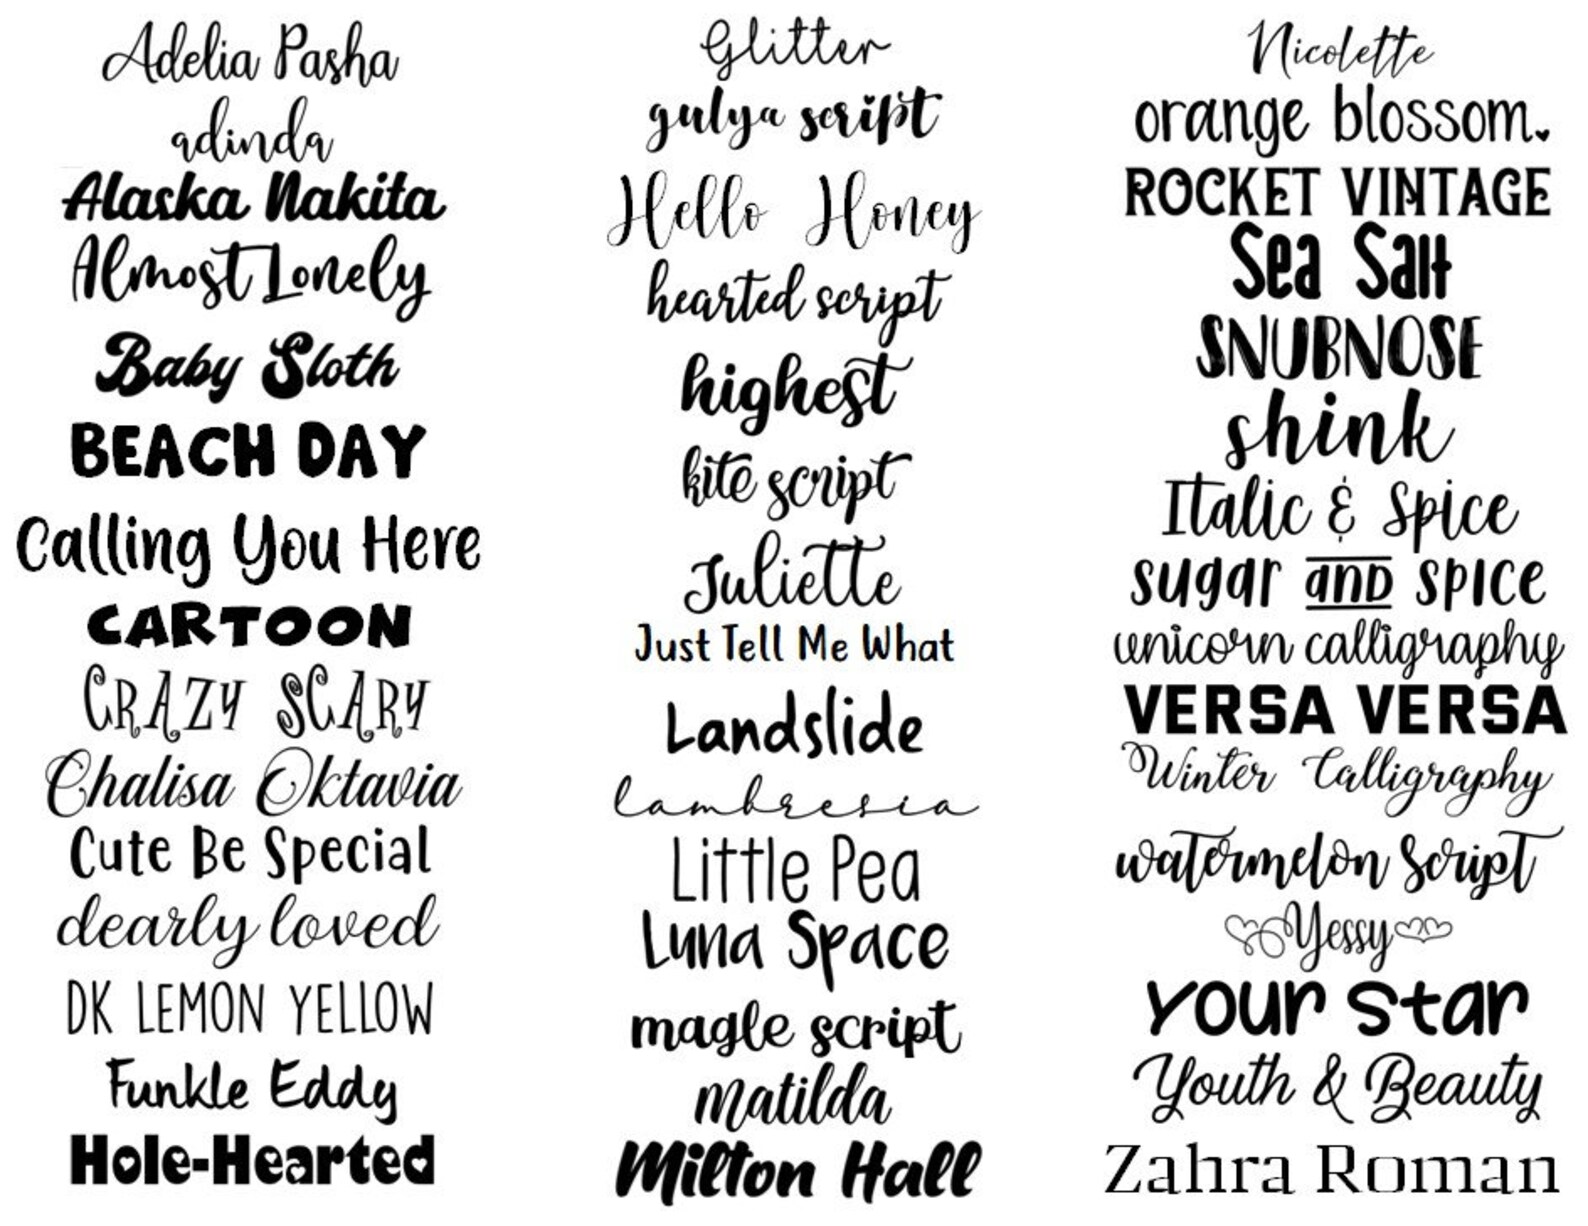 Adelia Pasha
adinda
Alaska Nakita
Almost Lonely
Baby Sloth
BEACH DAY
Calling You Here
CARTOON
CRAZY SCARY
Chalisa Oktavia
Cute Be Special
dearly loved
DK LEMON YELLOW
Funkle Eddy
Hole-Hearted
Glitter
gulya script
Hello Honey
hearted script
highest
kite script
Juliette
Just Tell Me What
Landslide
lambresia
Little Pea
Luna Space
magle script
Matilda
Milton Hall
Nicolette
orange blossom.
ROCKET VINTAGE
Sea Salt
SNUBNOSE
shink
Italic & Spice
sugar and spice
unicorn calligraphy
VERSA VERSA
Winter Calligraphy
watermelon Script
Yessy
your star
Youth & Beauty
Zahra Roman